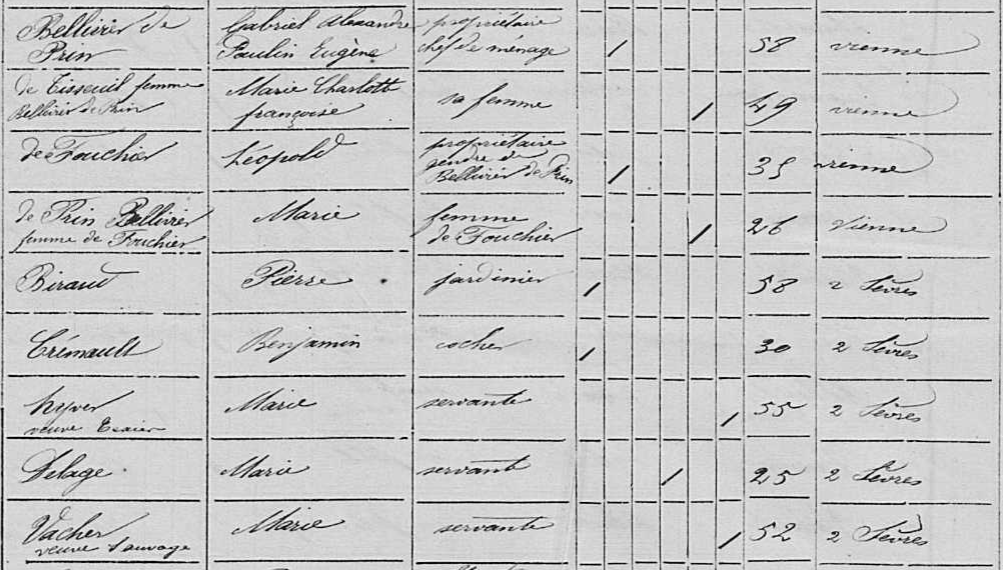 Bellivier de Gabriel Alexandre propriétaire
Prin Paulin Eugène chef de ménage / 58 vienne
de Tisseuil femme Marie Charlott
Bellivier de Prin françoise sa femme / 49 vienne
de Fouchier Léopold propriétaire
gendre de
Bellivier de Prin / 35 vienne
de Prin Bellivier Marie femme
femme de Fouchier de Fouchier / 26 Vienne
Biraud Pierre jardinier / 58 2 Sèvres
Crémault Benjamin cocher / 30 2 Sèvres
hyver Marie servante / 55 2 Sèvres
veuve
Delage Marie servante / 25 2 Sèvres
Vacher Marie servante / 52 2 Sèvres
veuve Sauvage